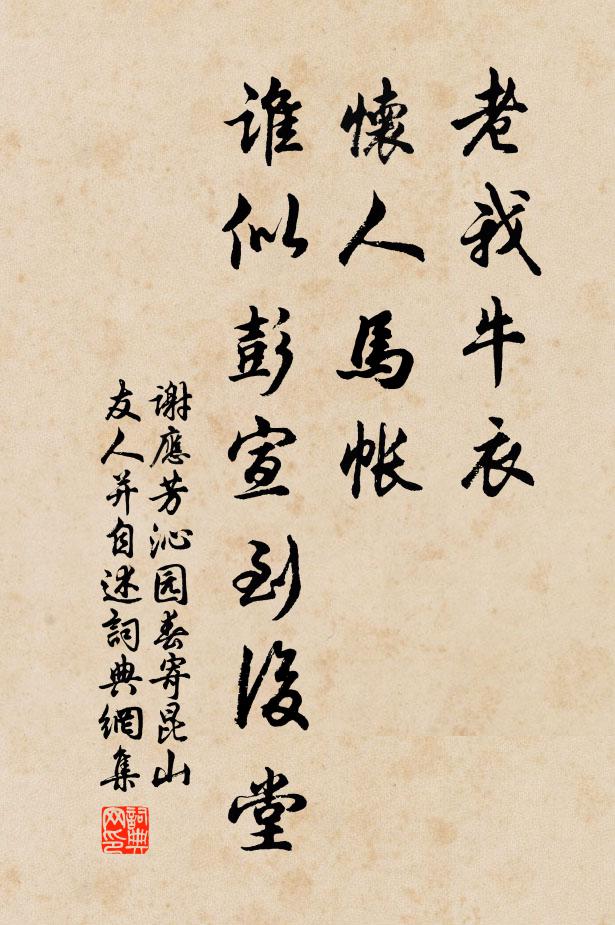 老我牛衣
懷人馬帐
谁似彭宣到後堂
谢應芳沁园春寄昆山
友人并自述詞典網集
詞典
网印